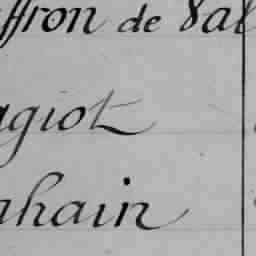 ffron de Val
agiot
nhain